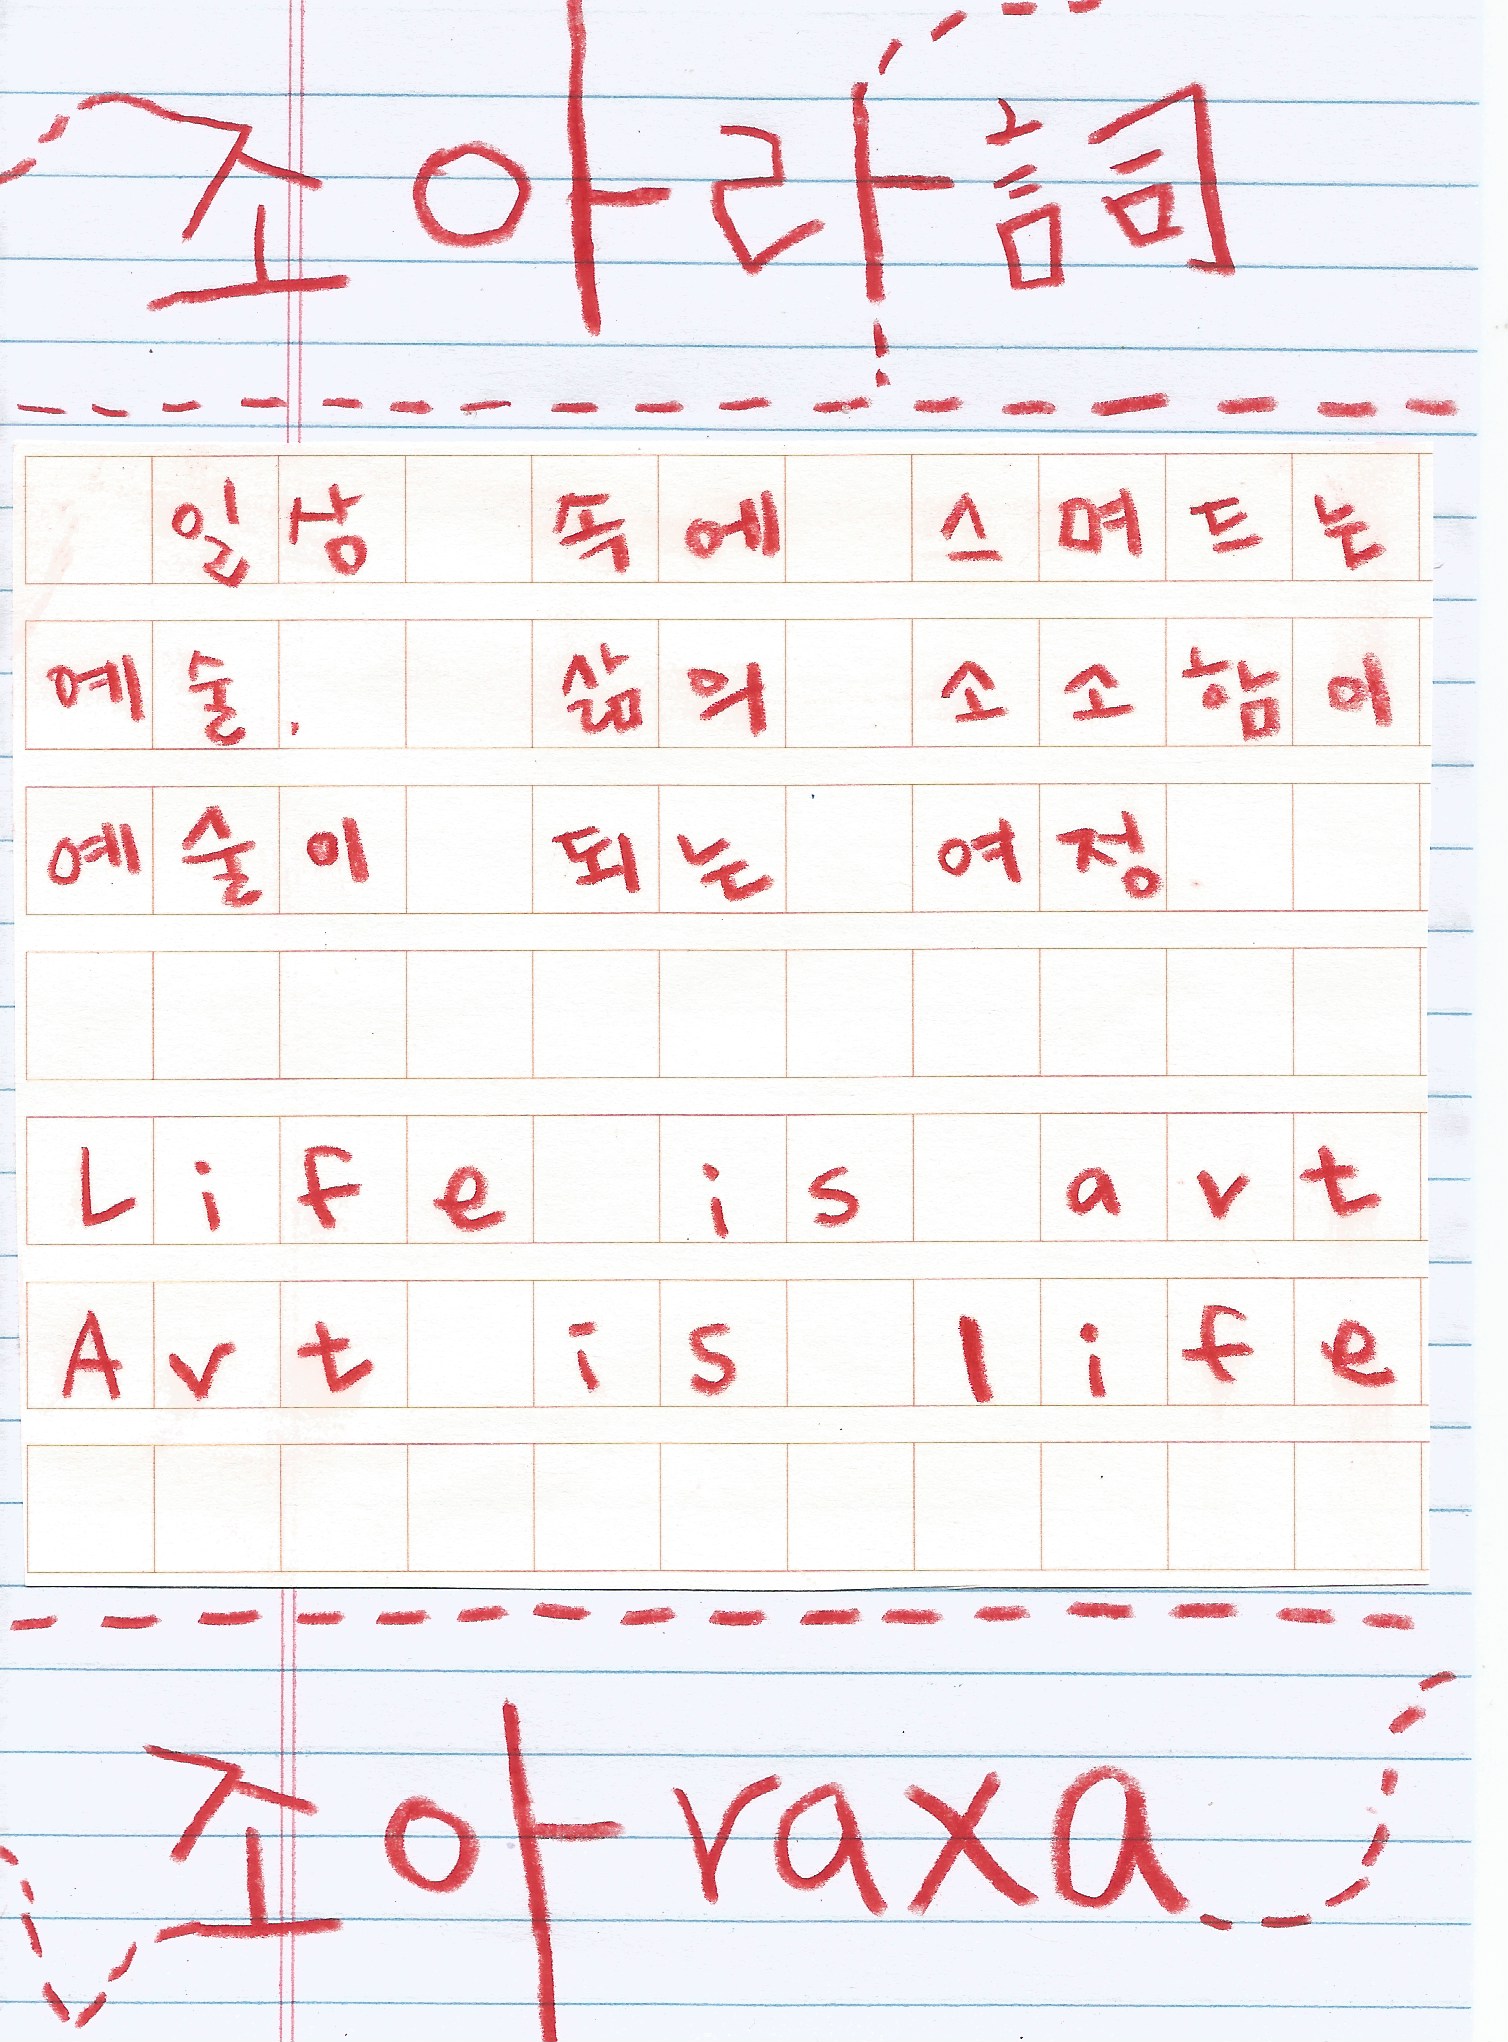 조아라詞
일상 속에 스며드는
예술. 삶의 소소함이
예술이 되는 여정
Life is art
Art is life
조아raxa